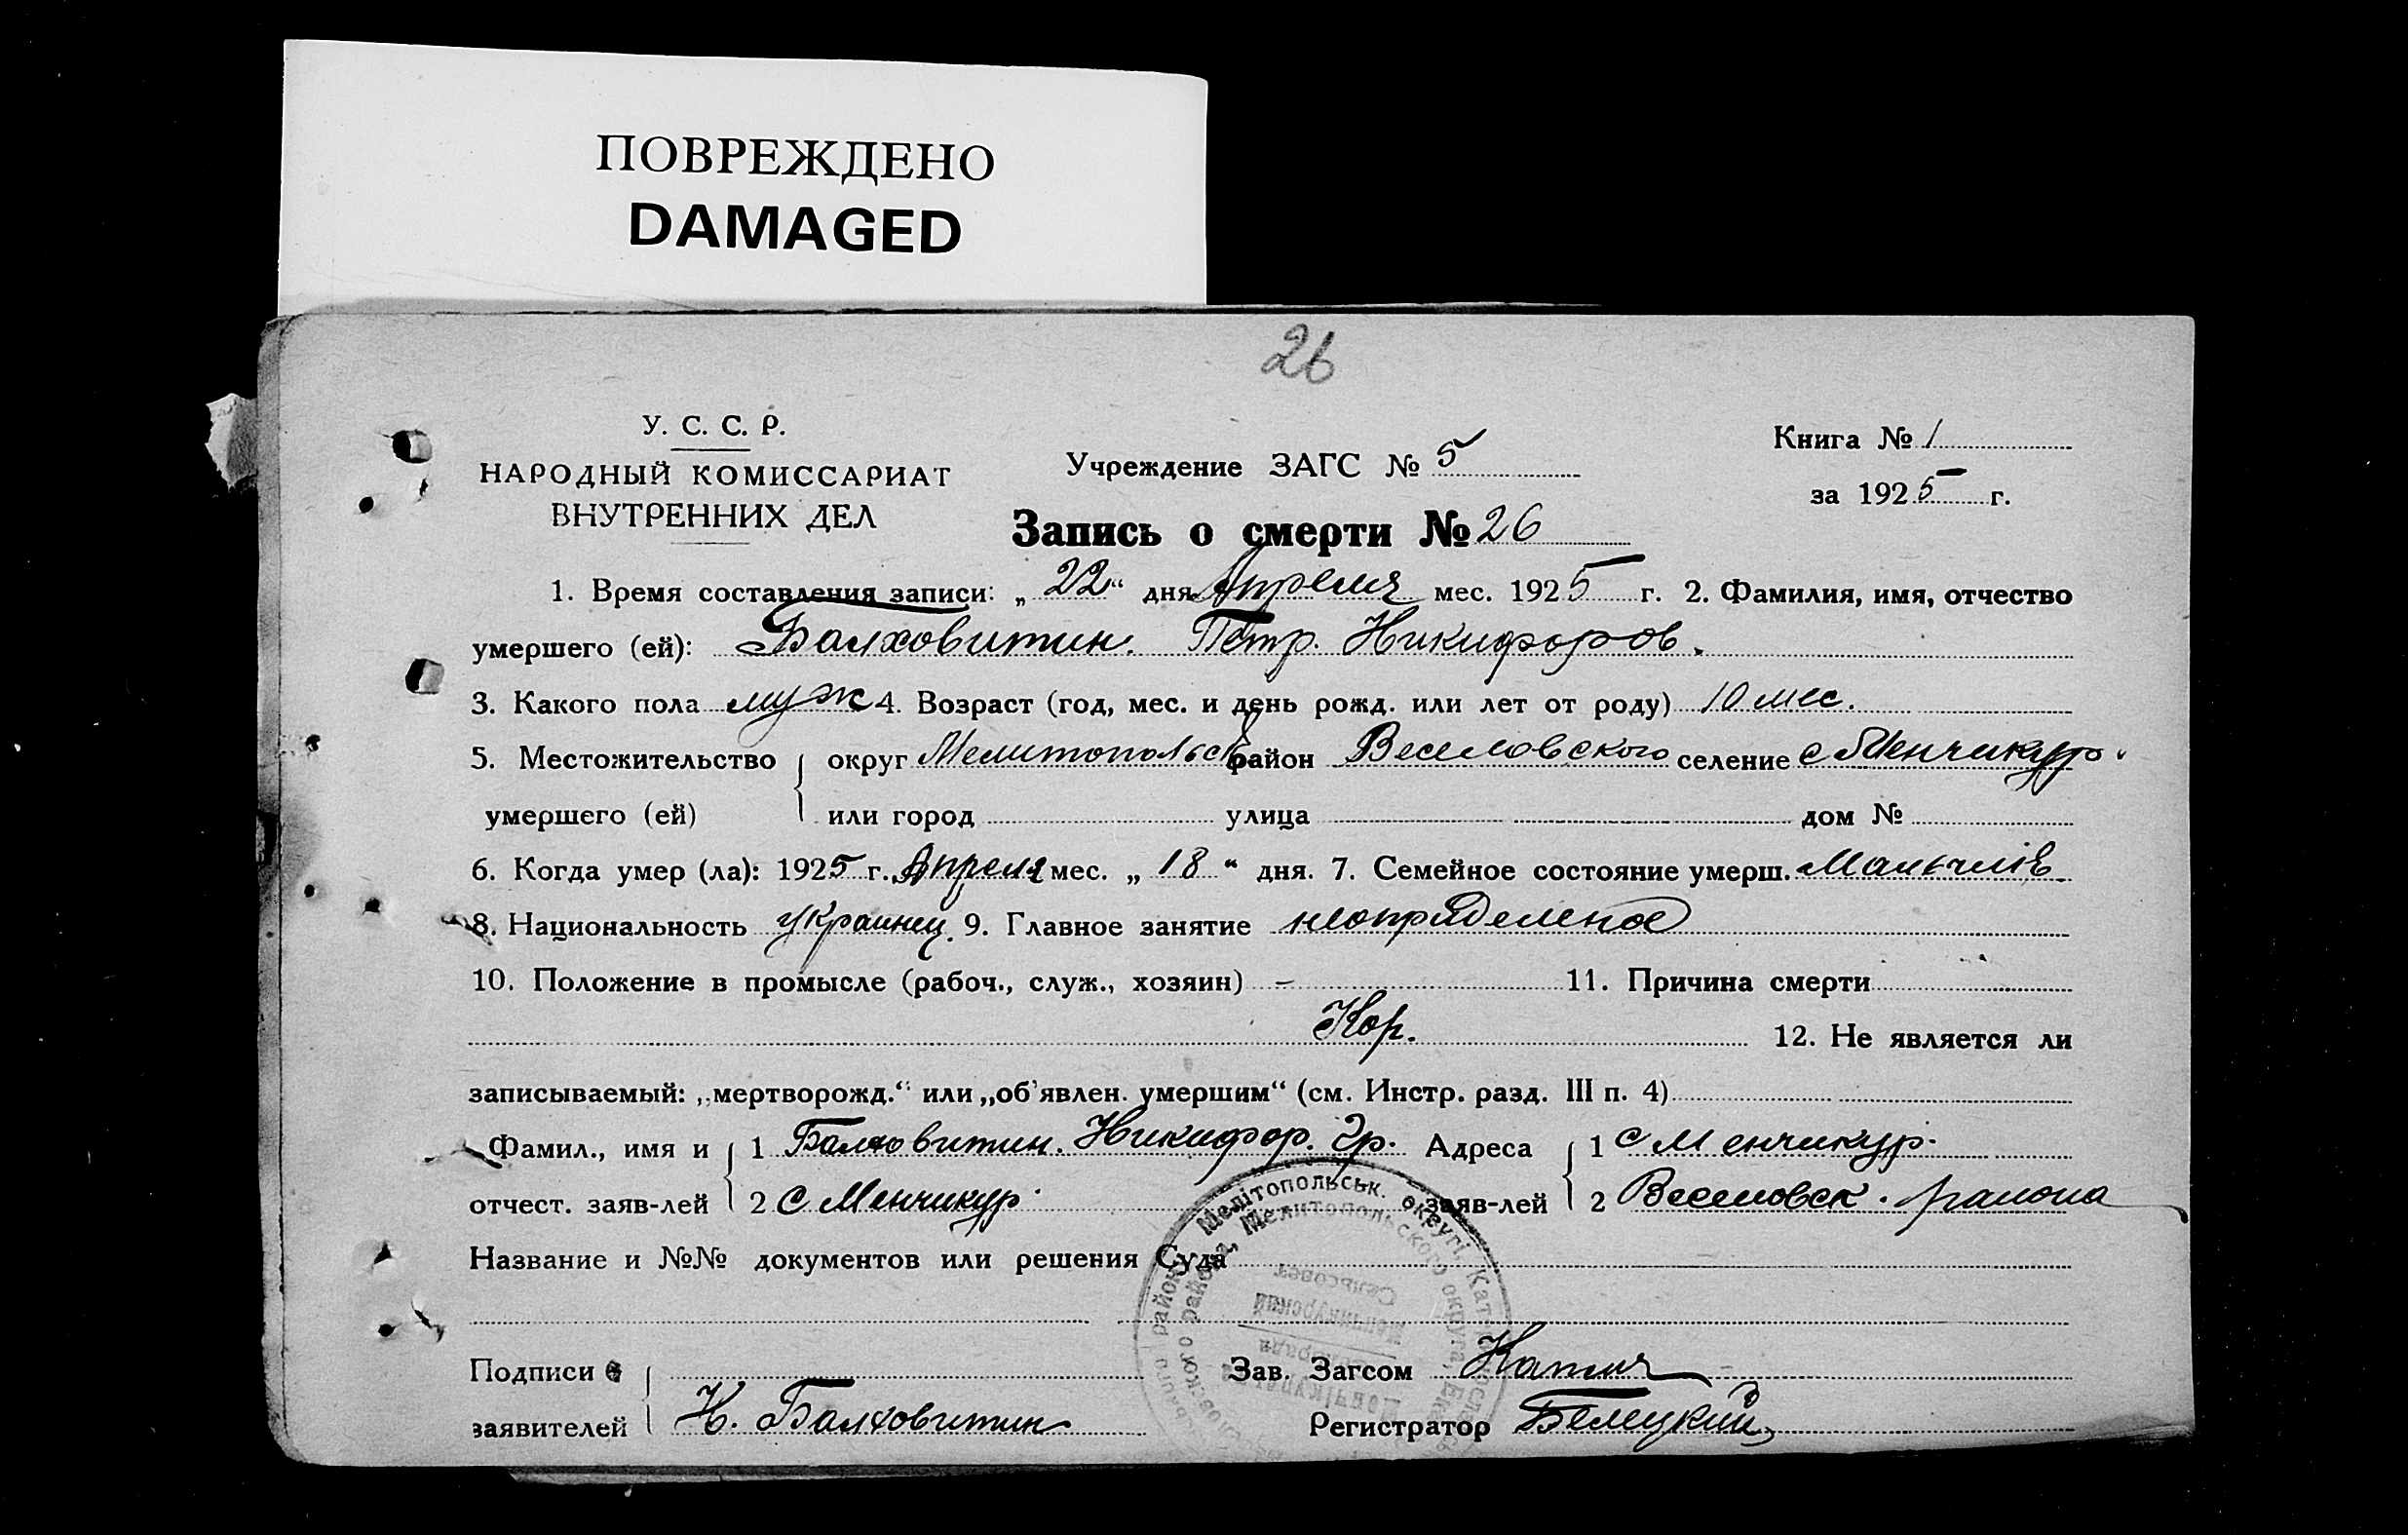 ПОВРЕЖДЕНО
DAMAGED
26
У. С. С. Р.
НАРОДНЫЙ КОМИССАРИАТ
ВНУТРЕННИХ ДЕЛ
Учреждение ЗАГС № 5
Книга № 1
за 1925 г.
Запись о смерти № 26
1. Время составления записи: „22“ дня Апреля мес. 1925 г. 2. Фамилия, имя, отчество
умершего (ей): Балховитин. Петр. Никифоров.
3. Какого пола муж 4. Возраст (год, мес. и день рожд. или лет от роду) 10 мес.
5. Местожительство округ Мелитопольск район Веселовского селение с Менчикур.
умершего (ей) или город улица дом №
6. Когда умер (ла): 1925 г. Апреля мес. „18“ дня. 7. Семейное состояние умерш.
8. Национальность украинец. 9. Главное занятие
10. Положение в промысле (рабоч., служ., хозяин) - 11. Причина смерти
Кор. 12. Не является ли
записываемый: „мертворожд.“ или „об'явлен. умершим“ (см. Инстр. разд. III п. 4)
Фамил., имя и 1 Балховитин. Никифор. Гр. Адреса 1 с Менчикур.
отчест. заяв-лей 2 с Менчикур. заяв-лей 2 Веселовск. района
Название и №№ документов или решения Суда
Мелітопольськ. округі, Кат
района, Мелитопольского округа, Ека
Сельсовет
Менчикурский
Подписи Зав. Загсом
заявителей Н. Балховитин Регистратор Белецкий